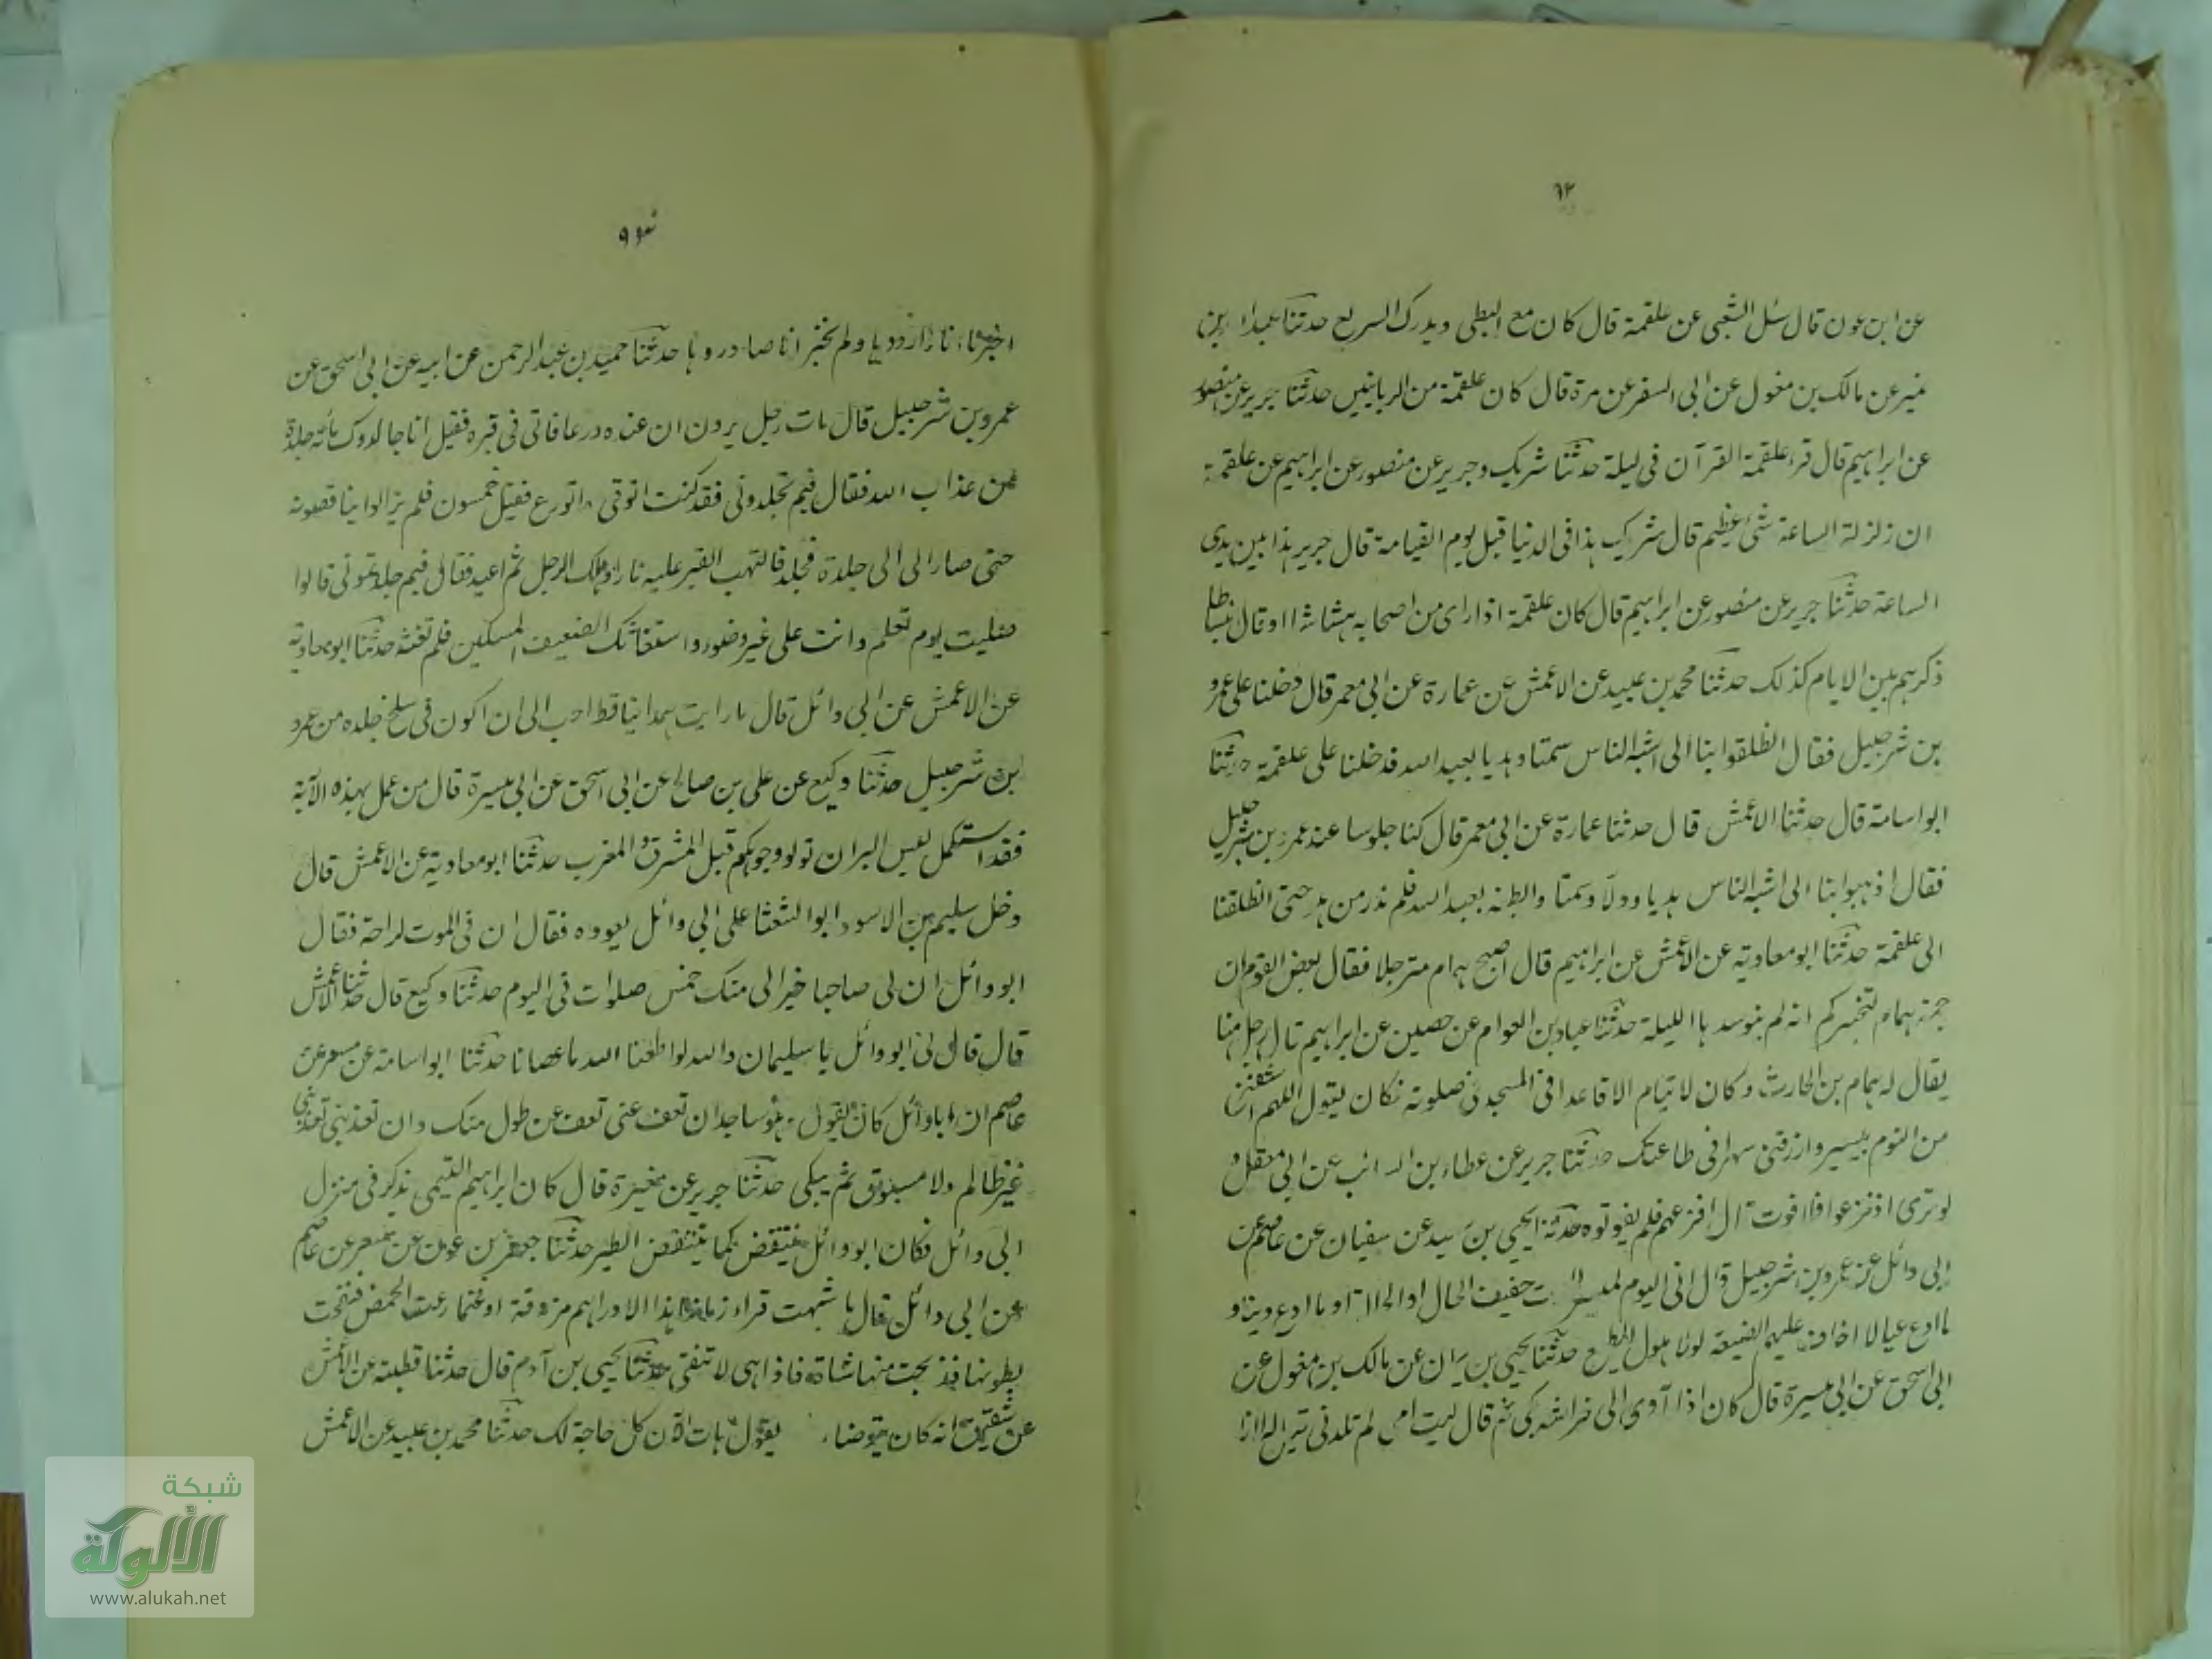 ٦٢
عن ابن عون قال سئل الشعبى عن علقمة قال كان مع البطى ويدرك السريع حدثنا عبدالله بن
نمير عن مالك بن مغول عن ابى السفر عن مرة قال كان علقمة من الربانيين حدثنا جرير عن منصور
عن ابراهيم قال قرء علقمة القرآن فى ليلة حدثنا شريك وجرير عن منصور عن ابراهيم عن علقمة
ان زلزلة الساعة شئ عظيم قال شريك هذا فى الدنيا قبل يوم القيامة قال جرير هذا بين يدى
الساعة حدثنا جرير عن منصور عن ابراهيم قال كان علقمة اذا راى من اصحابه هشاشا او قال
ذكرهم بين الايام كذلك حدثنا محمد بن عبيد عن الاعمش عن عمارة عن ابى معمر قال دخلنا على عمرو
بن شرحبيل فقال انطلقوا بنا الى اشبه الناس سمتا وهديا بعبد الله فدخلنا على علقمة حدثنا
ابو اسامة قال حدثنا الاعمش قال حدثنا عمارة عن ابى معمر قال كنا جلوسا عند عمرو بن شرحبيل
فقال اذهبوا بنا الى اشبه الناس هديا ودلا وسمتا وابطنه بعبد الله فلم ندر من هو حتى انطلقنا
الى علقمة حدثنا ابو معاوية عن الاعمش عن ابراهيم قال اصبح همام مترجلا فقال بعض القوم ان
جمة همام لتخبركم انه لم يتوسدها الليلة حدثنا عباد بن العوام عن حصين عن ابراهيم قال رجل منا
يقال له همام بن الحارث وكان لا ينام الا قاعدا فى المسجد فى صلوته فكان يقول اللهم اشفنى
من النوم بيسير وارزقنى سهرا فى طاعتك حدثنا جرير عن عطاء بن السائب عن ابى معقل و
لو ترى اذ فزعوا فلا فوت قال افزعهم فلم يفوتوه حدثنا يحيى بن سعيد عن سفيان عن عاصم عن
ابى وائل عن عمرو بن شرحبيل قال انى اليوم خفيف الحال او ما ادع دينا و
ما ادع عيالا اخاف عليهم الضيعة لولا هول المطلع حدثنا يحيى بن عن مالك بن مغول عن
ابى اسحق عن ابى ميسرة قال كان اذا آوى الى فراشه بكى ثم قال ليت امى لم تلدنى
اخبرنا انا واردوها ولم نخبر انا صادروها حدثنا حميد بن عبد الرحمن عن ابيه عن ابى اسحق عن
عمرو بن شرحبيل قال مات رجل يرون ان عنده ورعا فاتى فى قبره فقيل انا جالدوك مائة جلدة
من عذاب الله فقال فيم تجلدونى فقد كنت اتوقى واتورع فقيل خمسون فلم يزالوا يناقصونه
حتى صار الى الى جلدة فجلد فالتهب القبر عليه نارا وهلك الرجل ثم اعيد فقال فيم جلدتمونى قالوا
صليت يوم تعلم وانت على غير وضوء واستغاثك الضعيف المسكين فلم تغثه حدثنا ابو معاوية
عن الاعمش عن ابى وائل قال ما رايت همدانيا قط احب الى ان اكون فى سلخ جلده من عمرو
بن شرحبيل حدثنا وكيع عن على بن صالح عن ابى اسحق عن ابى ميسرة قال من عمل بهذه الآية
فقد استكمل ليس البر ان تولوا وجوهكم قبل المشرق والمغرب حدثنا ابو معاوية عن الاعمش قال
دخل سليم بن الاسود ابو الشعثا على ابى وائل يعوده فقال ان فى الموت لراحة فقال
ابو وائل ان لى صاحبا خيرا لى منك خمس صلوات فى اليوم حدثنا وكيع قال حدثنا الاعمش
قال قال لى ابو وائل يا سليمان والله لو اطعنا الله ما عصانا حدثنا ابو اسامة عن مسعر عن
عاصم ان ابا وائل كان يقول وهو ساجد ان تعف عنى تعف عن طول منك وان تعذبنى تعذبنى
غير ظالم ولا مسبوق ثم يبكى حدثنا جرير عن مغيرة قال كان ابراهيم التيمى يذكر فى منزل
ابى وائل فكان ابو وائل ينتفض كما ينتفض الطير حدثنا جعفر بن عون عن مسعر عن عاصم
عن ابى وائل قال ما شبهت قراء زماننا هذا الا دراهم مزوقة او غنما رعت الحمض فنفخت
بطونها فذبحت منها شاة فاذا هى لا تنقى حدثنا يحيى بن آدم قال حدثنا قطبة عن الاعمش
عن شقيق انه كان يتوضاء يقول هات الآن كل حاجة لك حدثنا محمد بن عبيد عن الاعمش
شبكة
الألوكة
www.alukah.net